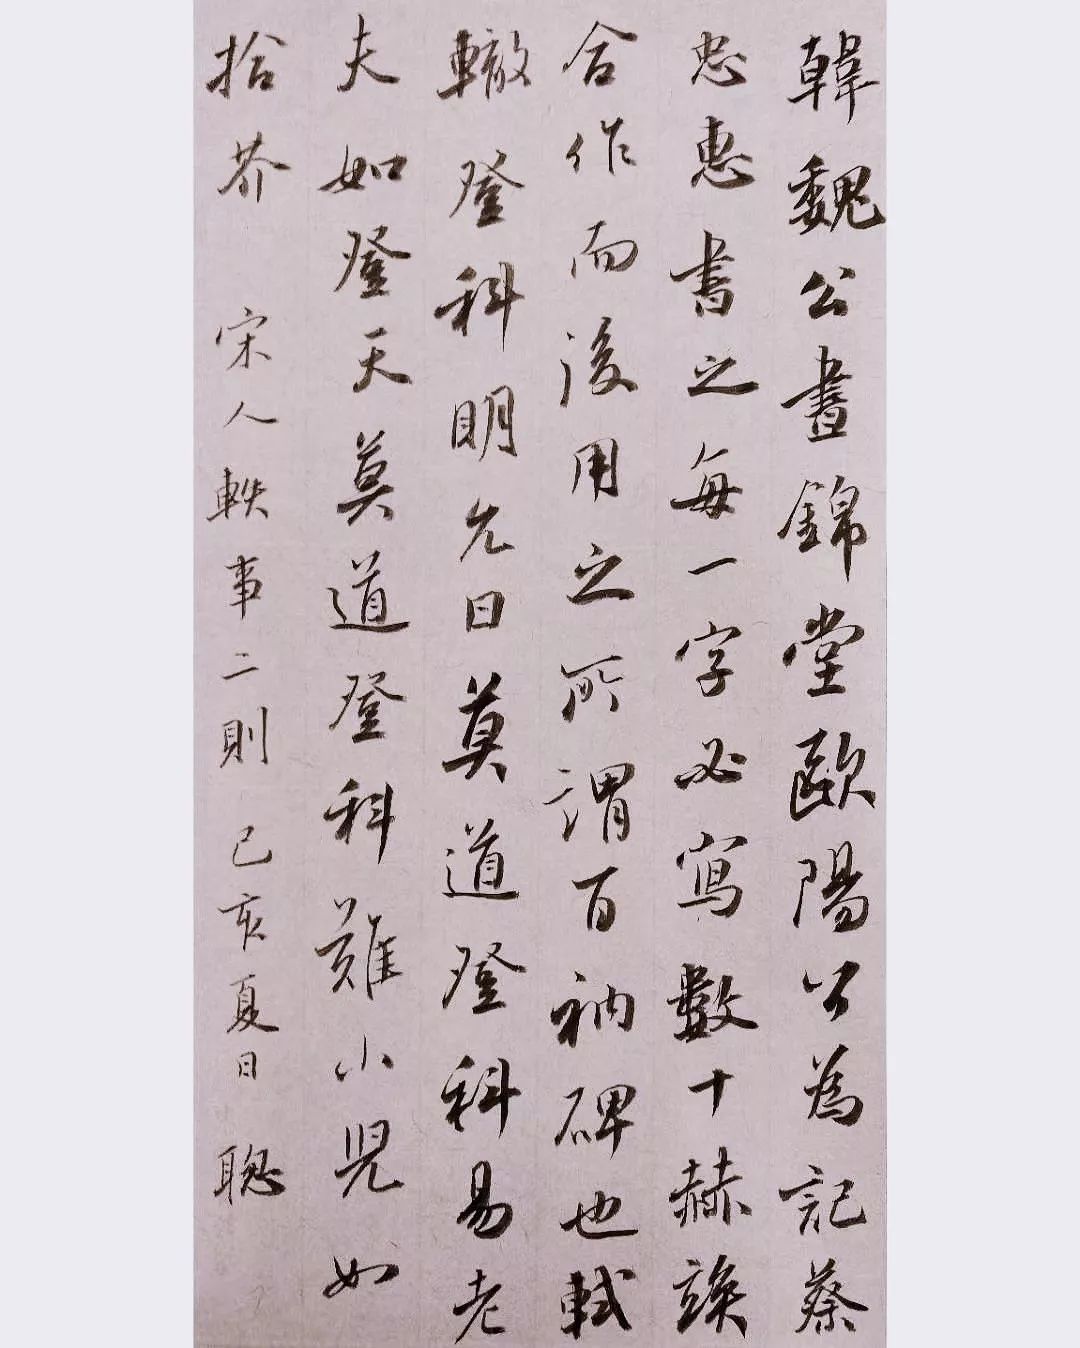 韓魏公晝錦堂歐陽公為記蔡
忠惠書之每一字必寫數十赫蹏
合作而後用之所謂百衲碑也軾
轍登科明允曰莫道登科易老
夫如登天莫道登科難小児如
拾芥 宋人軼事二則 己亥夏日 聰